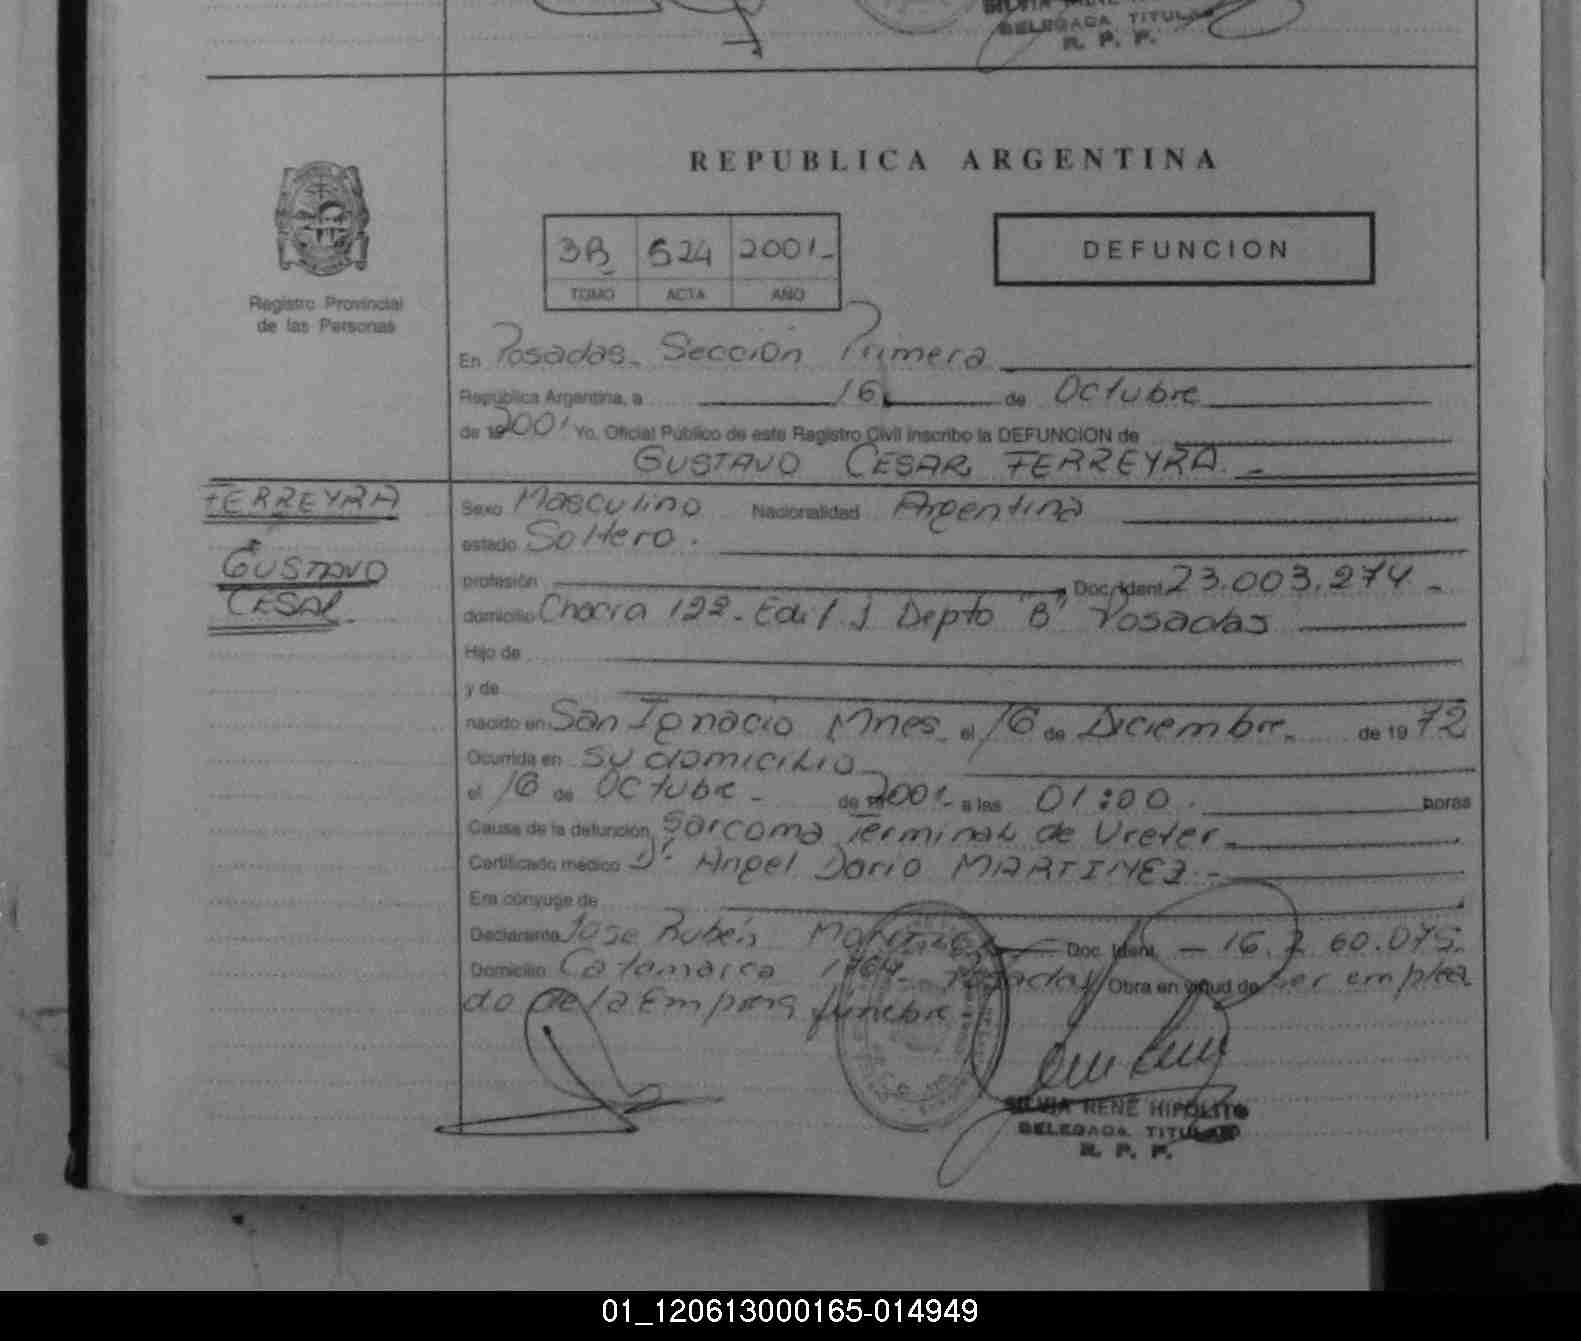 DELEGADA TITULAR
R. P. P.
REPUBLICA ARGENTINA
Registro Provincial
de las Personas
3B 524 2001-
TOMO ACTA AÑO
DEFUNCION
En Posadas- Sección Primera
República Argentina, a 16 de Octubre
de 192001 Yo, Oficial Público de este Registro Civil inscribo la DEFUNCION de
GUSTAVO CESAR FERREYRA. -
FERREYRA
GUSTAVO
CESAR.
Sexo Masculino Nacionalidad Argentina
estado Soltero.
profesión Doc. Ident. 23.003.274-
domicilio Chacra 122- Edif. J Depto "B" Posadas
Hijo de
y de
nacido en San Ignacio Mnes. el 16 de Diciembre- de 1972
Ocurrida en su domicilio
el 16 de Octubre- de 2001- a las 01:00. horas
Causa de la defunción Sarcoma Terminal de Ureter-
Certificado médico Dr. Angel Dario MARTINEZ.-
Era cónyuge de
Declarante Jose Rubén Martinez Doc. Ident. -16. 60.075.
Domicilio Catamarca 1764- Posadas Obra en virtud de ser emplea
do de la Empresa funebre
SILVIA RENE HIPOLITO
DELEGADA TITULAR
R. P. P.
01_120613000165-014949